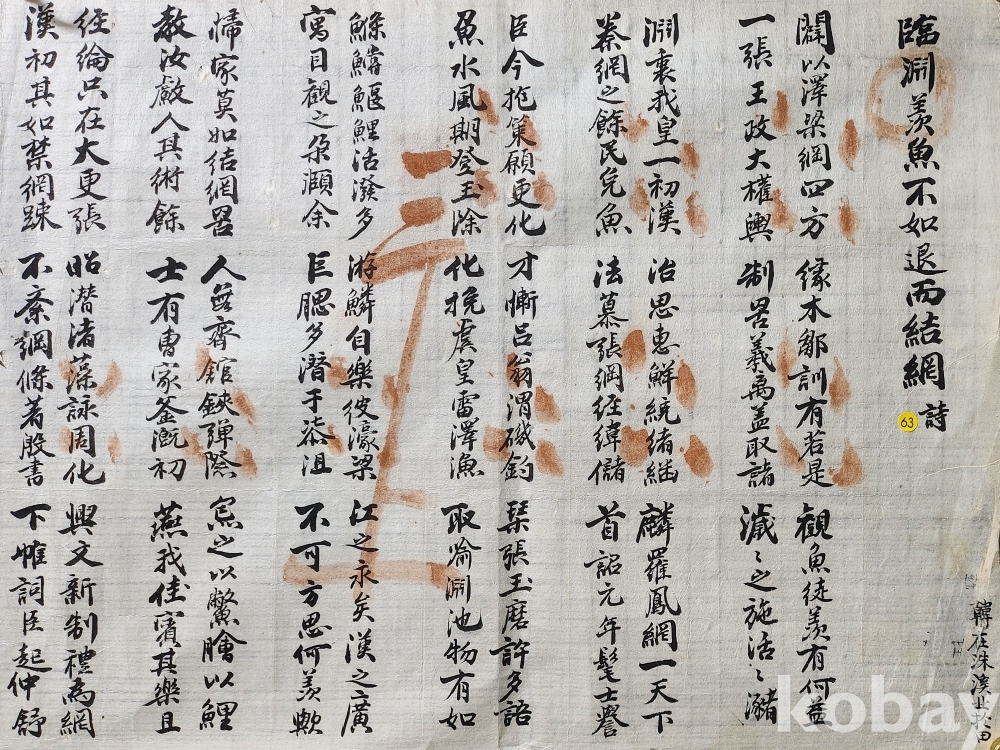 臨淵羨魚不如退而結網 詩
闢以澤梁網四方
一張王政大權輿
緣木鄒訓有若是
制罟義禹盖取諸
觀魚徒羨有何益
濊〻之施活〻瀦
淵衷我皇一初漢
秦網之餘民免魚
治思惠鮮統緖緬
法慕張綱經緯儲
麟羅鳳網一天下
首詔元年髦士譽
臣今抱策願更化
魚水風期登玉除
才慚呂翁渭磯釣
化挽虞皇雷澤漁
琹張玉磨許多語
取喩淵池物有如
鰷鱨鰋鯉活潑多
寓目觀之朶余
游鱗自樂彼濠梁
巨腮多潛于漆沮
江之永矣漢之廣
不可方思何羨歟
歸家莫如結網罟
敎汝人其術餘
人齊館鋏彈際
士有曹家釜漑初
烹之以鱉膾以鯉
燕我佳賓其樂且
經綸只在大更張
漢初其如禁網踈
昭潛渚藻詠周化
不紊綱條著殷書
興文新制禮爲網
下帷詞臣起仲舒
63
韓在洙溪北田
kobay